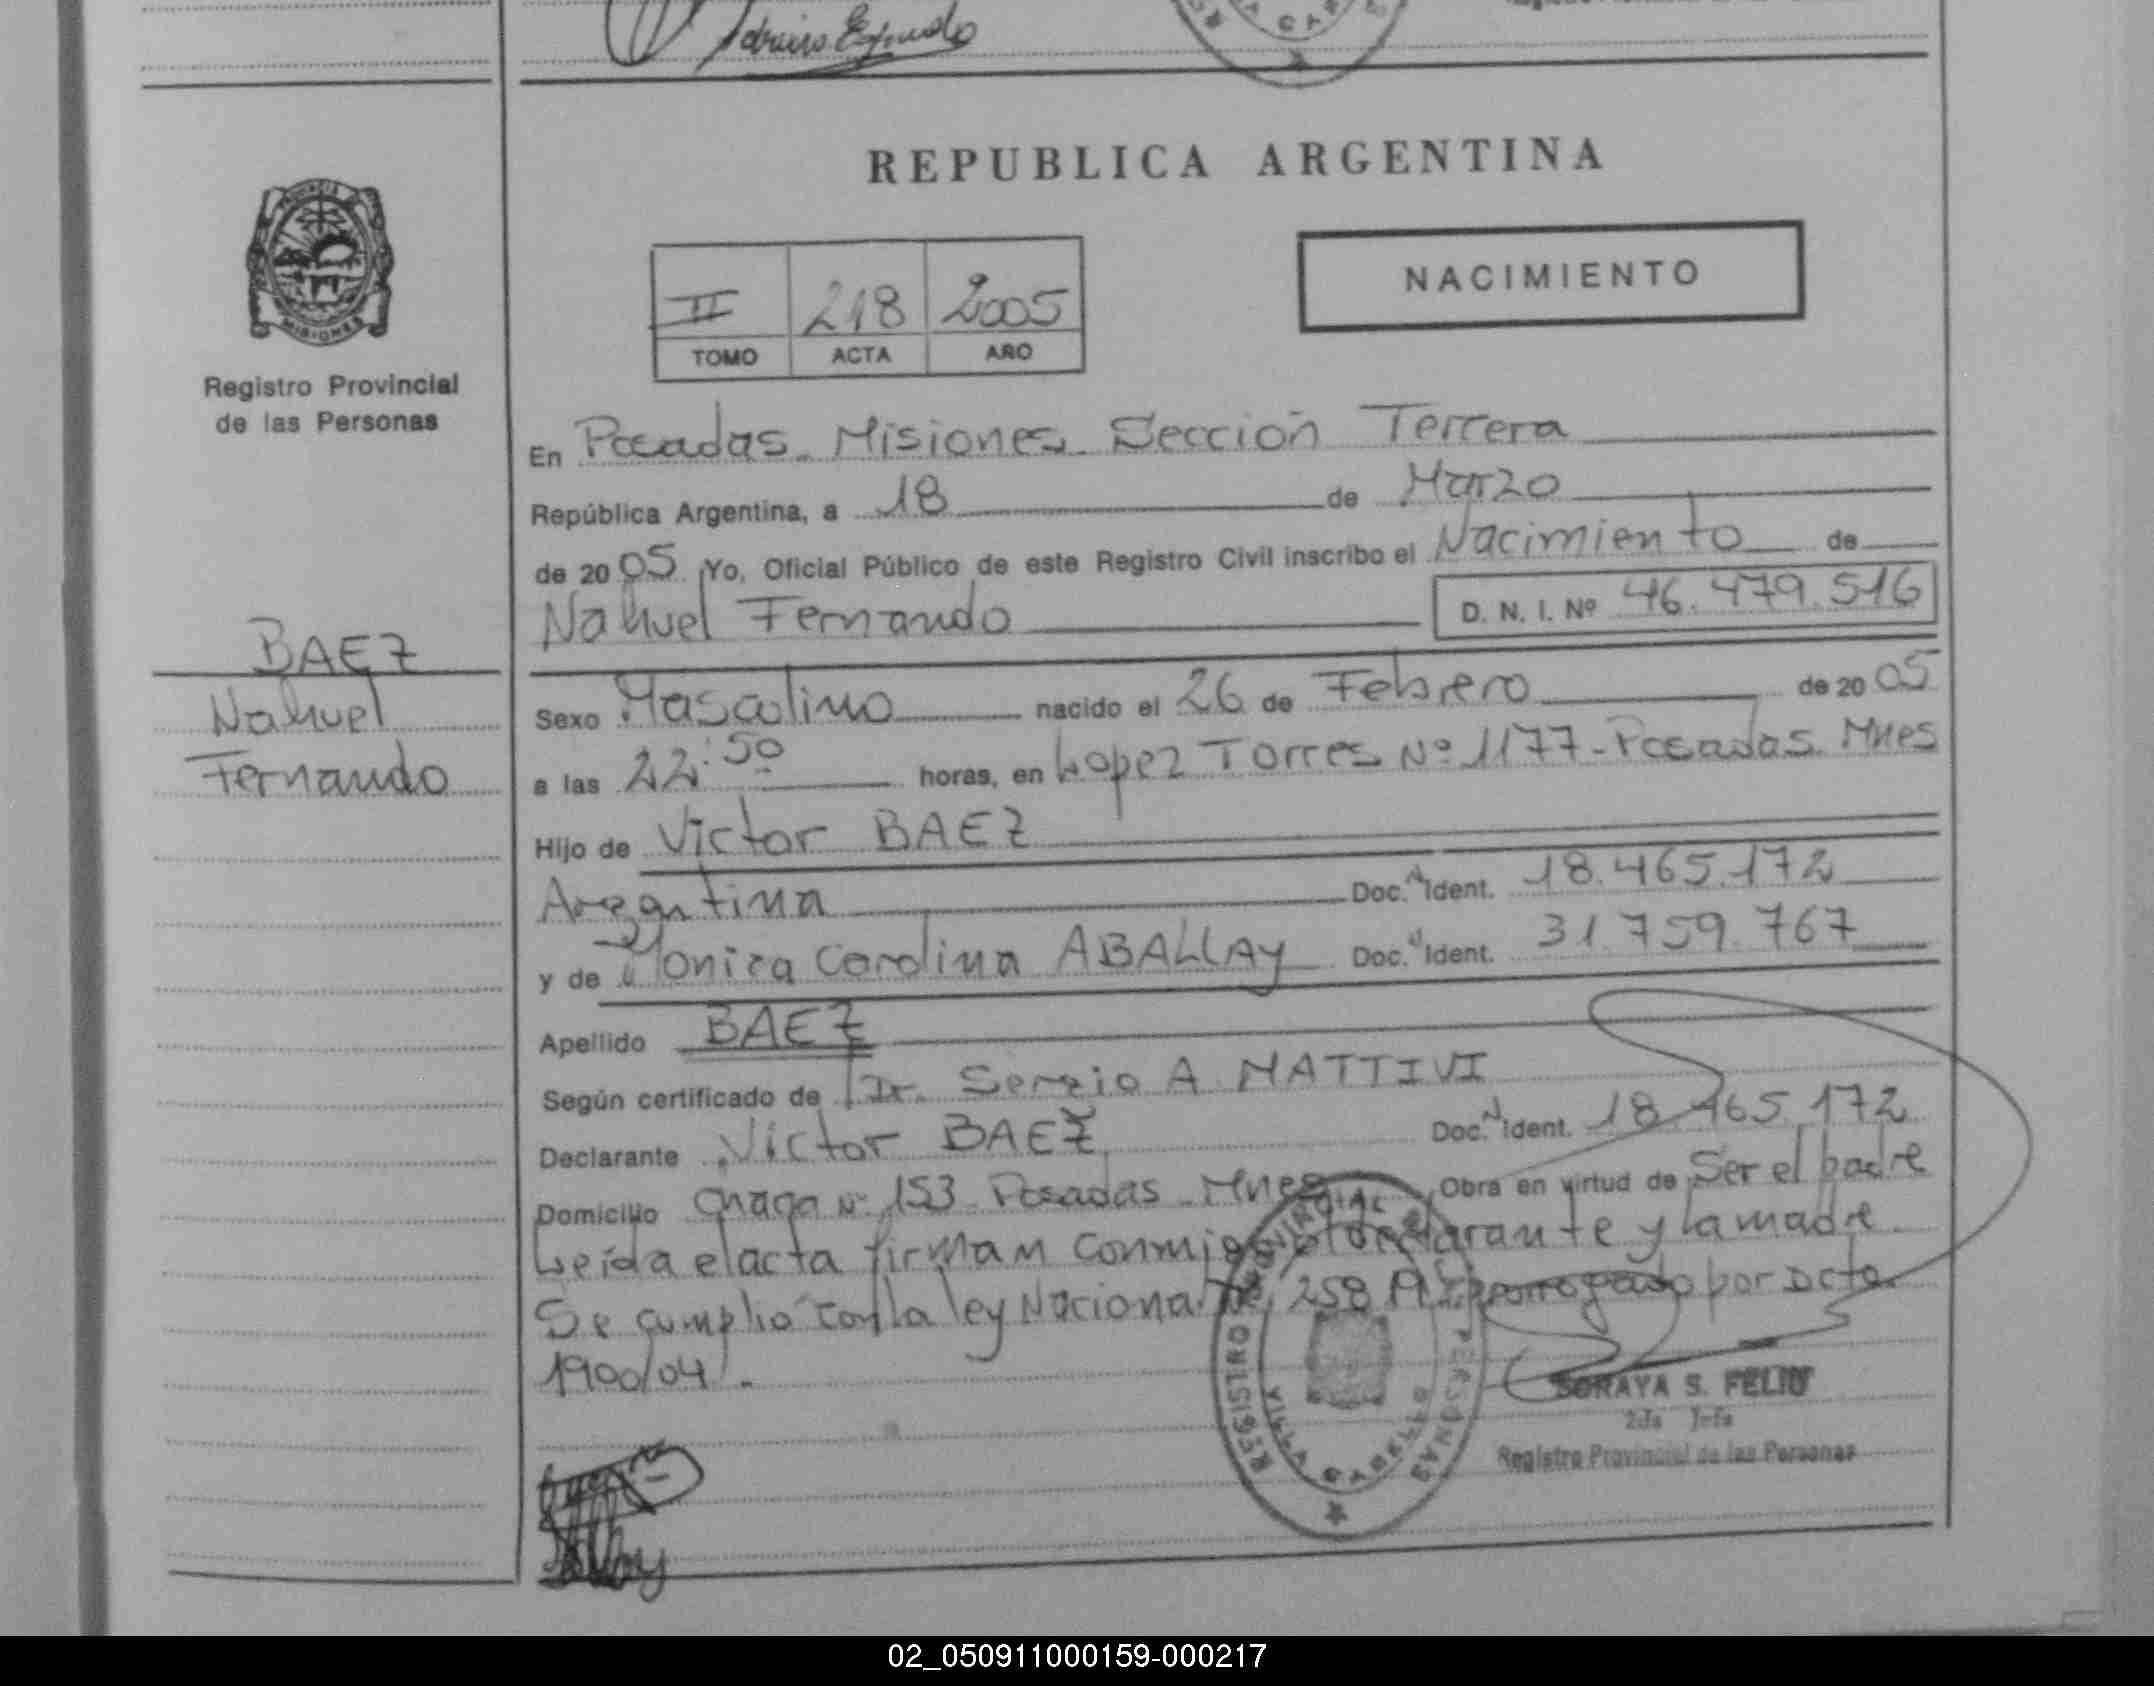 REPUBLICA ARGENTINA
II 218 2005
TOMO ACTA AÑO
NACIMIENTO
PROVINCIA
MISIONES
Registro Provincial
de las Personas
BAEZ
Nahuel
Fernando
En Posadas Misiones Sección Tercera
República Argentina, a 18 de Marzo
de 20 05 Yo, Oficial Público de este Registro Civil inscribo el Nacimiento de
Nahuel Fernando D. N. I. Nº 46.479.516
Sexo Masculino nacido el 26 de Febrero de 20 05
a las 22:50 horas, en Lopez Torres Nº 1177-Posadas Mnes
Hijo de Victor BAEZ
Argentina Doc. N Ident. 18.465.172
y de Monica Carolina ABALLAY Doc. N Ident. 31.759.767
Apellido BAEZ
Según certificado de Dr. Sergio A MATTIVI
Declarante Victor BAEZ Doc. N Ident. 18.465.172
Domicilio Nº 153 Posadas Mnes Obra en virtud de Ser el padre
Leida el acta firman conmigo declarante y la madre
Se cumplio con la ley Nacional Nº 258 prorrogado por Dcto
1900/04.
REGISTRO PROVINCIAL PERSONAS
VILLA CABELLO
SORAYA S. FELIU
2da Jefa
Registro Provincial de las Personas
02_050911000159-000217